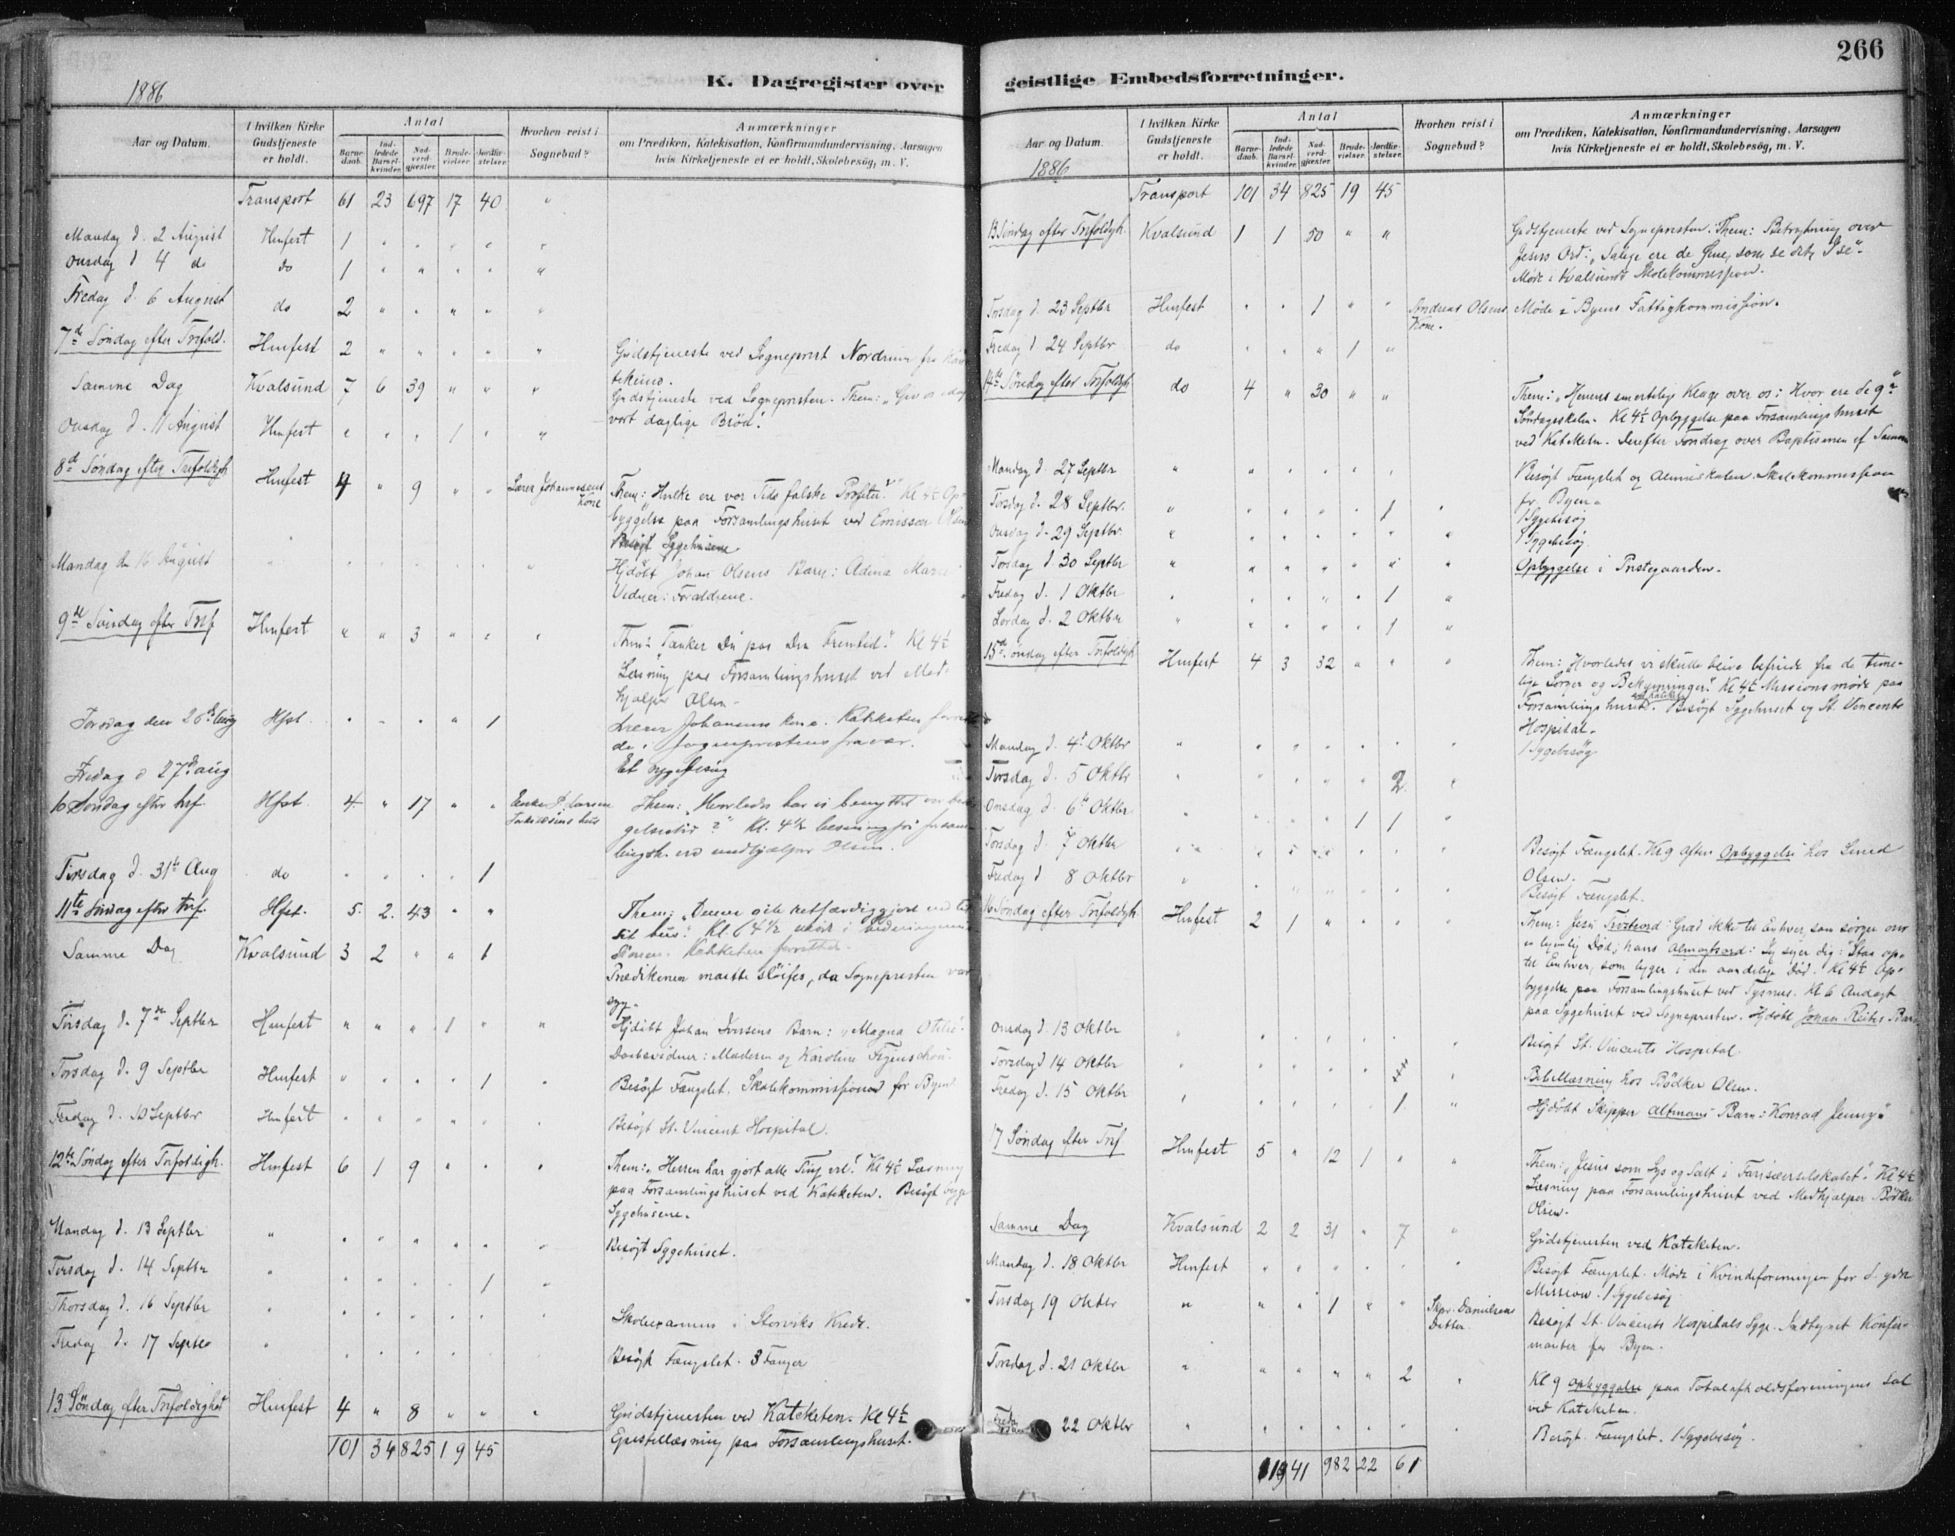 266
K. Dagregister over geistlige Embedsforretninger.
1886
Aar og Datum.
I hvilken Kirke Gudstjeneste er holdt.
Antal
Barnedaab.
Indledede Barselkvinder.
Nadverdgjester.
Brudevielser.
Jordfæstelser.
Hvorhen reist i Sognebud?
Anmærkninger
om Prædiken, Katekisation, Konfirmandundervisning, Aarsagen
hvis Kirketjeneste ei er holdt, Skolebesøg, m. V.
Transport 61 23 697 17 40 "
Mandag d. 2 August Hmfest 1 " " " " "
Onsdag d 4 do do 1 " " " " "
Fredag d. 6 August do 2 " " " " "
7de Søndag efter Trefold. Hmfest 2 " " " " " Gudstjeneste ved Sogneprest Nordrum fra
Samme Dag Kvalsund 7 6 39 " " " Gudstjeneste ved Sognepresten. Them: "Giv os idag
vort daglige Brød."
Onsdag d. 11 August Hmfest " " " 1 " "
8de Søndag efter Trefoldigh Hmfest 4 " 9 " " Lærer Johannesens Kone Them: Hvilke ere vor Tids falske Profeter?" Kl 4½ Op-
byggelse paa Forsamlingshuset ved Emissær
Besøgt Sygehusene
Mandag den 16 August Hjdøbt Johan Olsens Barn: Adina Marie
Vidner: Forældrene.
9de Søndag efter Tref Hmfest " " 3 " " " Them: Tænker Du paa Din Fremtid?" Kl 4½
Læsning paa Forsamlingshuset ved Med-
hjælper Olsen.
Torsdag den 26de Aug Hfst. " " " " 1 Lærer Johannesens Kone. Kateketen forrette-
de i Sogneprestens fravær.
Fredag d 27de aug Et sygebesøg
10 Søndag efter tref. Hfst. 4. " 17 " "
Kl. 4½ Læsning paa forsam-
lingsh. ved medhjælper Olsen.
Tirsdag d. 31te Aug do " " " " 1
11te Søndag efter tref. Hfst. 5. 2. 43 " " Them: "Denne gik retfærdiggjort ned til
sit hus." Kl. 4½
Kateketen forrettede.
Samme Dag Kvalsund 3 2 " " 1 Prædikenen maatte sløifes, da Sognepresten var
syg.
Tirsdag d. 7de Septbr Hmfest " " " 1 " " Hjdøbt Johan Iversens Barn: "Magna Otilie".
Daabsvidner: Moderen og Karoline Figenschou.
Torsdag d. 9 Septbr Hmfest " " " " 1 " Besøgt Fængslet. Skolekommissionen for Byen
Fredag d. 10 Septbr Hmfest " " " " " Besøgt St. Vincent Hospital.
12te Søndag efter Trefoldigh. Hmfest 6 1 9 " " " Them: "Herren har gjort alle Ting vel." Kl 4½ Læsning
paa Forsamlingshuset ved Katekten. Besøgt begge
Sygehusene.
Mandag d. 13 Septbr " " " " " " " Besøgt Sygehuset.
Tirsdag d. 14 Septbr " " " " " 1 "
Thorsdag d. 16 Septbr " " " " " " " Skoleexamen i Storviks Kreds.
Fredag d. 17 Septbr " " " " " " Besøgt Fængslet. 3 Fanger
13 Søndag efter Trefoldighet Hmfest 4 " 8 " " " Gudstjenesten ved Katekten. Kl 4½
Epistellæsning paa Forsamlingshuset.
101 34 825 19 45
1886
Aar og Datum.
I hvilken Kirke Gudstjeneste er holdt.
Antal
Barnedaab.
Indledede Barselkvinder.
Nadverdgjester.
Brudevielser.
Jordfæstelser.
Hvorhen reist i Sognebud?
Anmærkninger
om Prædiken, Katekisation, Konfirmandundervisning, Aarsagen
hvis Kirketjeneste ei er holdt, Skolebesøg, m. V.
Transport 101 34 825 19 45
13 Søndag efter Trefoldigh. Kvalsund 1 1 50 " " Gudstjeneste ved Sognepresten. Them: Betragtning over
Jesus Ord: "Salige ere de Øine, som se det, I se".
Møde i Kvalsunds Skolekommission.
Torsdag d. 23 Septbr Hmfest " " 1 " " Andreas Olsens Kone. Møde i Byens Fattigkommission.
Fredag d 24 Septbr do " " " 1 "
14de Søndag efter Trefoldigh. do 4 " 30 " " Them: "Herrens smertelige Klage over os: Hvor ere de 9"
Søndagsskolen. Kl 4½ Opbyggelse paa Forsamlingshuset
ved Katekten. Derefter Foredrag over Baptismen af Samme
Mandag d. 27 Septbr " " " " " " Besøgt Fængslet og Almueskolen. Skolekommission
for Byen.
Tirsdag d. 28 Septbr. " " " " " 1 " 1 Sygebesøg
Onsdag d. 29 Septbr " " " " " " " 1 Sygebesøg.
Torsdag d. 30 Septbr " " " " " " " Opbyggelse i Prestegaarden.
Fredag d. 1 Oktbr " " " " 1 "
Lørdag d. 2 Oktbr " " " " " 1 "
15de Søndag efter Trefoldigh. Hmfest 4 3 32 " " " Them: "Hvorledes vi skulle blive befriede fra de time-
lige Sorger og Bekymringer." Kl 4½ Missionsmøde paa
Forsamlingshuset. Besøgt Sygehuset og St. Vincents
Hospital.
Mandag d. 4de Oktbr " " " " " " " 1 Sygebesøg
Tirsdag d. 5 Oktbr " " " " 2 "
Onsdag d. 6te Oktbr " " " " 1 1 "
Torsdag d. 7 Oktbr " " " " " " Besøgt Fængslet. Kl 9 Aften Opbyggelse hos Smed
Olsen.
Fredag d 8 Oktbr " " " " " " Besøgt Fængslet.
16 Søndag efter Trefoldigh. Hmfest 2 1 " " " " Them: Jesu Trøsteord: Græd ikke til Enhver, som sørger over
en legemlig Død; hans Almagtsord: Jeg siger dig: Staa op-
til Enhver, som ligger i den aandelige Død. Kl 4½ Op-
byggelse paa Forsamlingshuset ved Tysnes. Kl 6 Andagt
paa Sygehuset ved Sognepresten. Hjdøbt Johan Reites Barn
Onsdag d. 13 Oktbr " " " " " " Besøgt St. Vincents Hospital.
Torsdag d 14 Oktbr " " " " " Bibellæsning hos Bødker Olsen.
Fredag d. 15 Oktbr " " " " " 1 " Hjdøbt Skipper Altmans Barn: Konrad Jenny"
17 Søndag efter Tref Hmfest 5 " 12 1 " " Them: "Jesus som Lys og Salt i Farisæerselskabet". Kl 4½
Læsning paa Forsamlingshuset ved Medhjælper Bødker
Olsen.
Samme Dag Kvalsund 2 2 31 " 7 " Gudstjenesten ved Katekten.
Mandag d. 18 Oktbr Hmfest " " " " " " Besøgt Fængslet. Møde i Kvindeforeningen for d. ydre
Mission. 1 Sygebesøg
Tirsdag 19 Oktbr " " " 1 " " Skpr. Danielsens Datter. Besøgt St. Vincents Hospitals Syge. Indbegynt Konfir-
manter for Byen.
Torsdag d. 21 Oktbr " " " " " 2 " Kl 9 Opbyggelse paa Totalafholdsforeningens Sal
ved Katekten.
Fredag 22 Oktbr " " " " " " Besøgt Fængslet. 1 Sygebesøg.
119 41 982 22 61